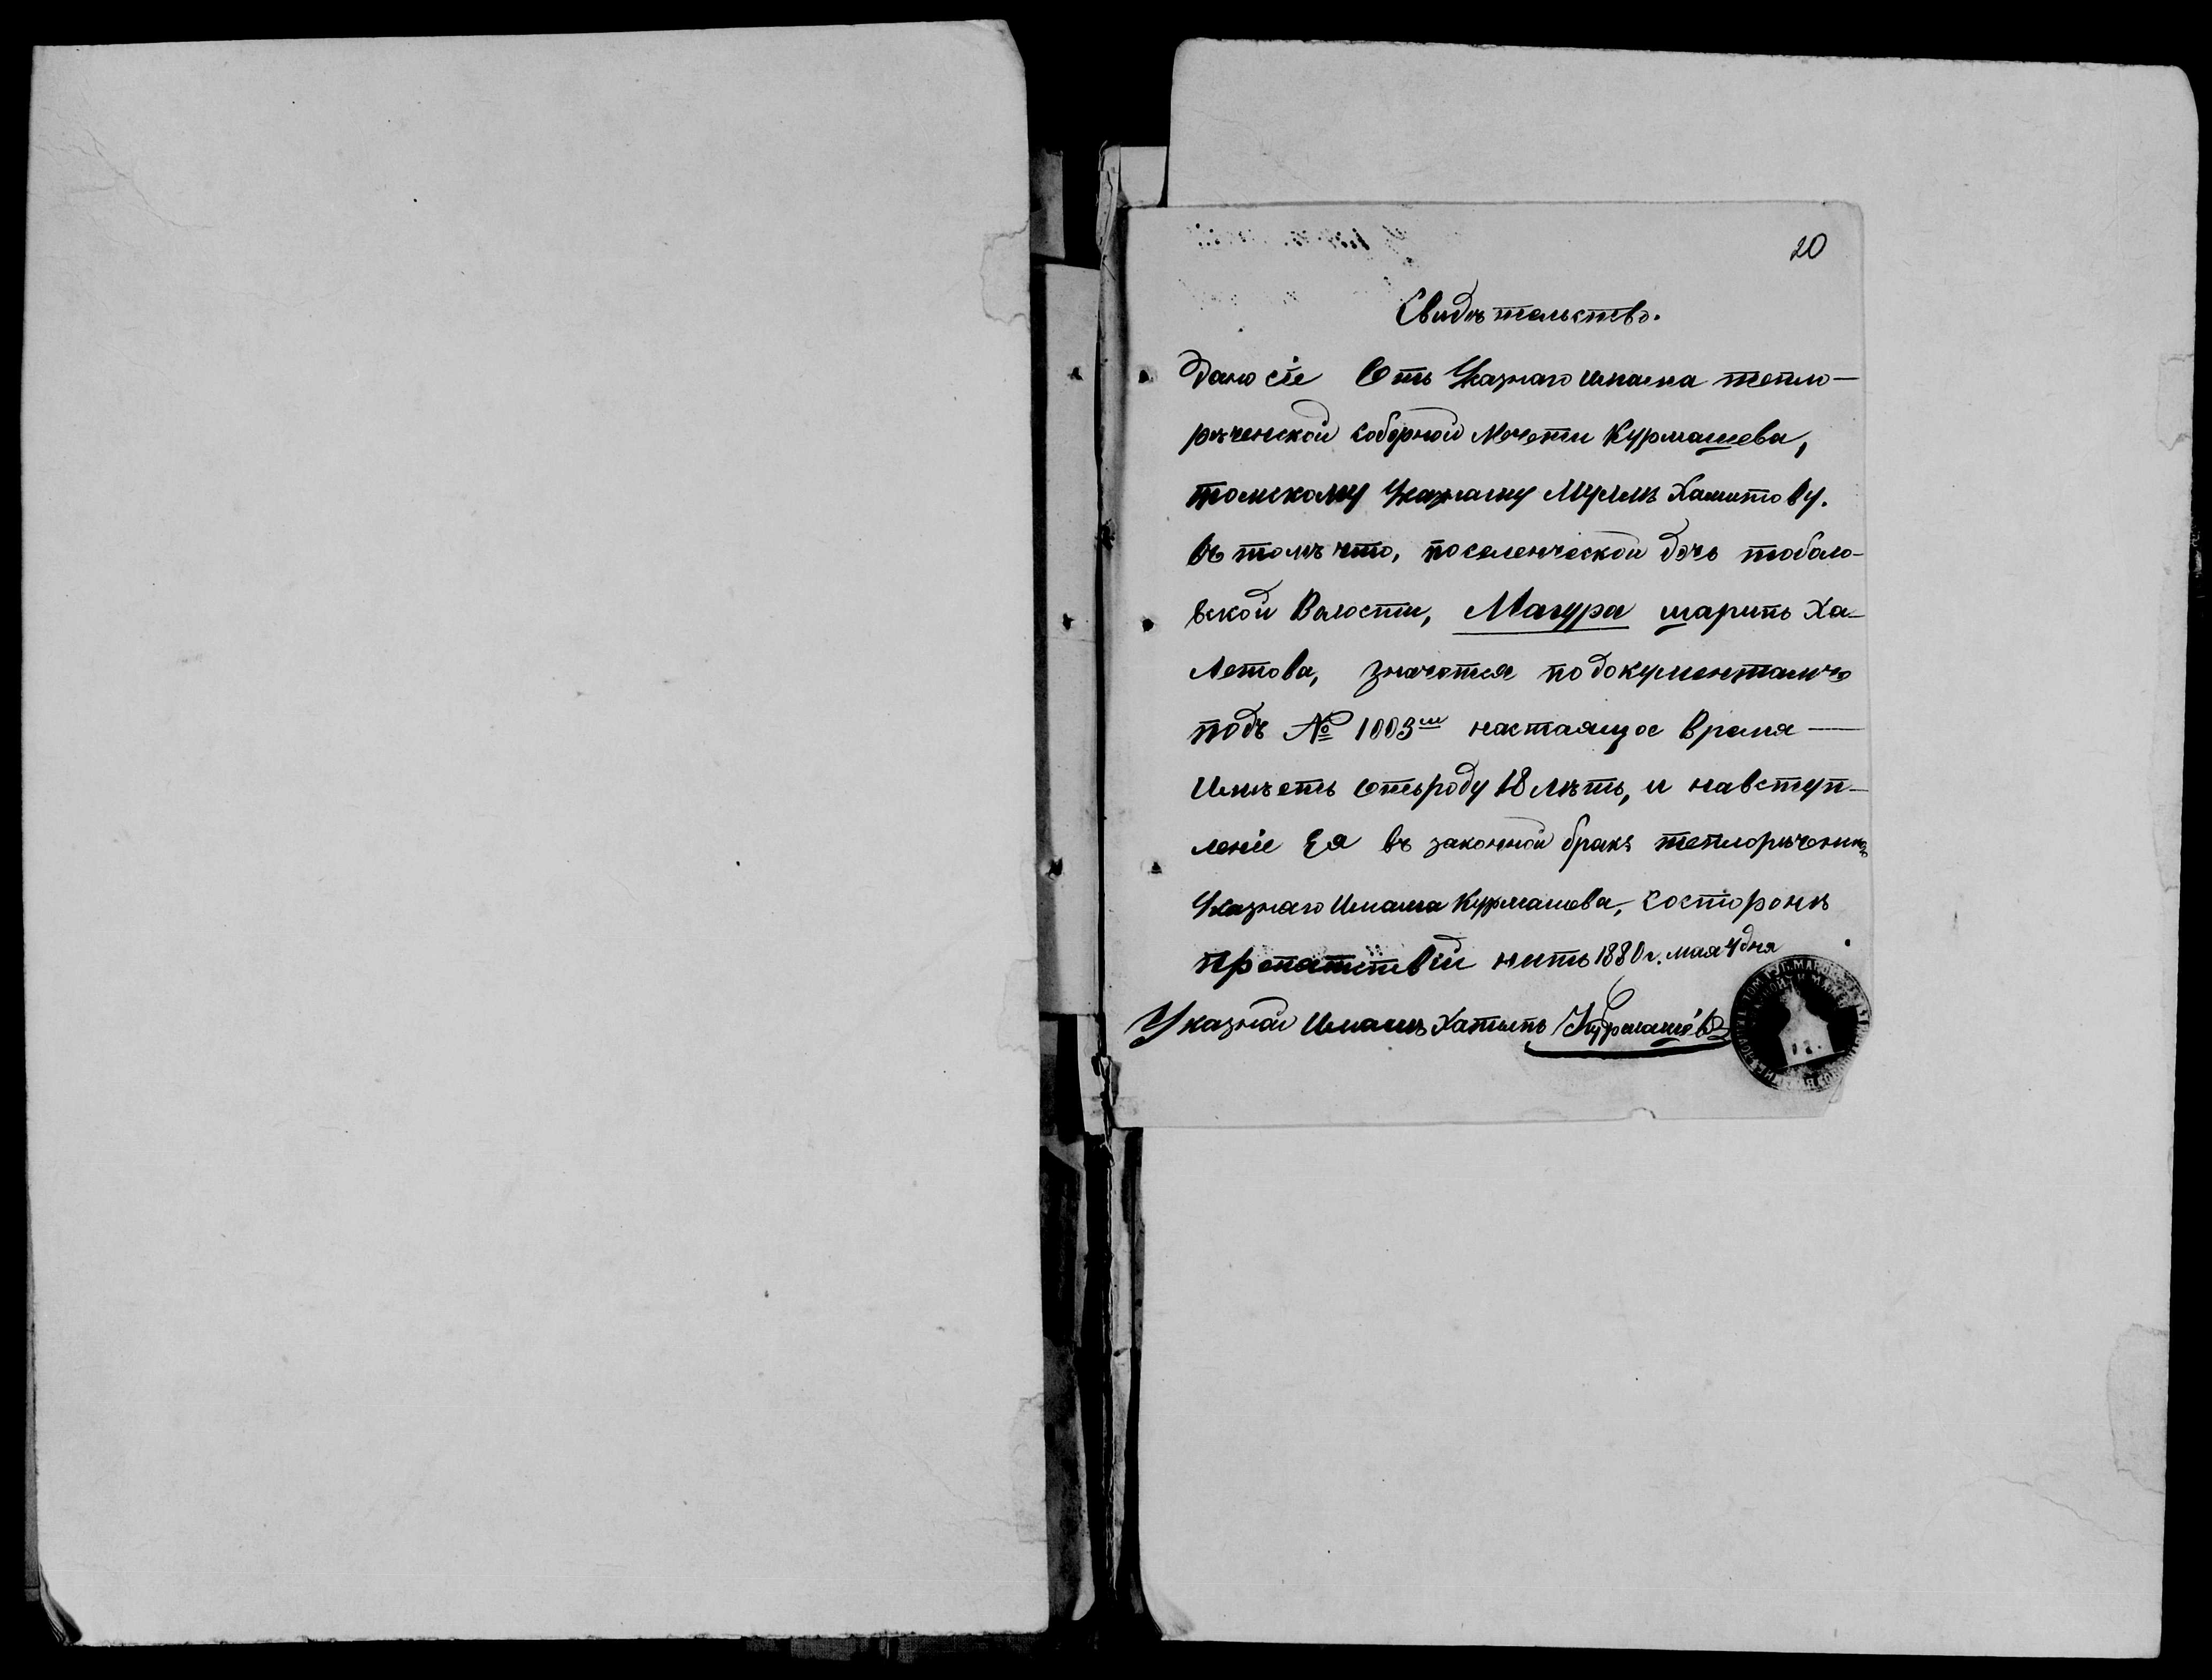 20
Свидѣтельство.
Дано сіе Отъ Указнаго имама тепло-
рѣченской соборной Мечети Курмашева,
томскому Указному Муллѣ Хамитову.
въ томъ что, поселенческой дочь тобало-
вской Волости, Магура шарипъ Ха-
летова, значется по документамъ
подъ № 1003 настаящое Время —
Имѣетъ отъроду 18 лѣтъ, и навступ-
леніе Ея въ законной бракъ
Указнаго Имама Курмашева, состоронѣ
препатствій нитъ 1880 г. мая 4 дня
Указной Имамъ Хатыпъ Курмашевъ